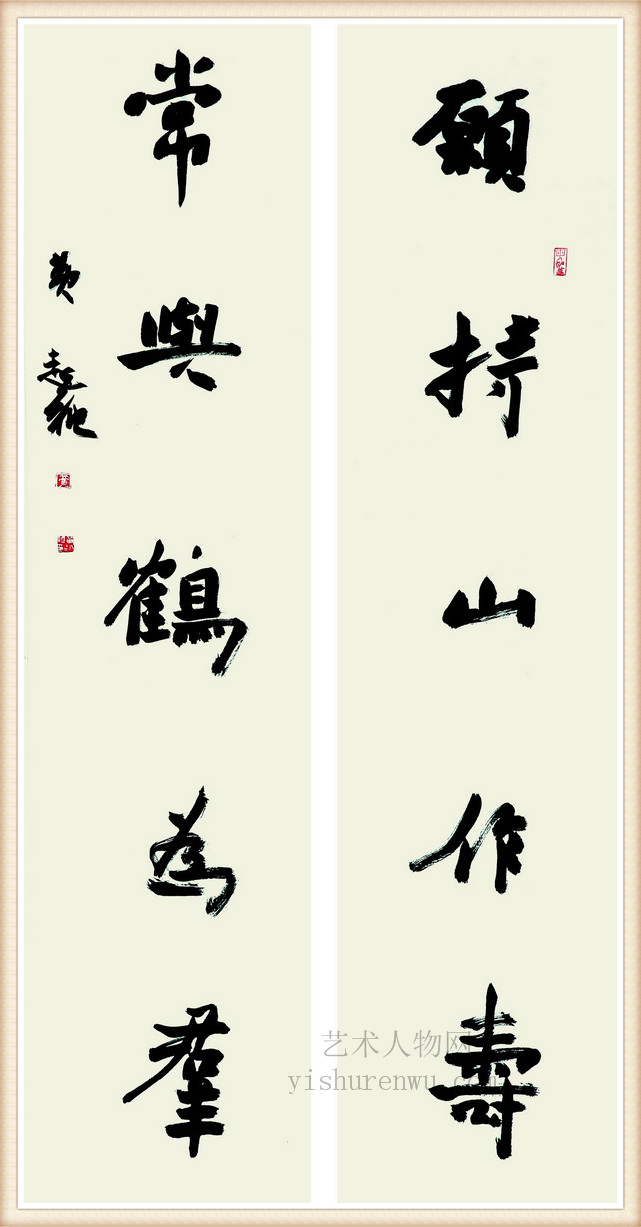 願持山作壽
常與鶴為羣
黄
艺术人物网
yishurenwu.com